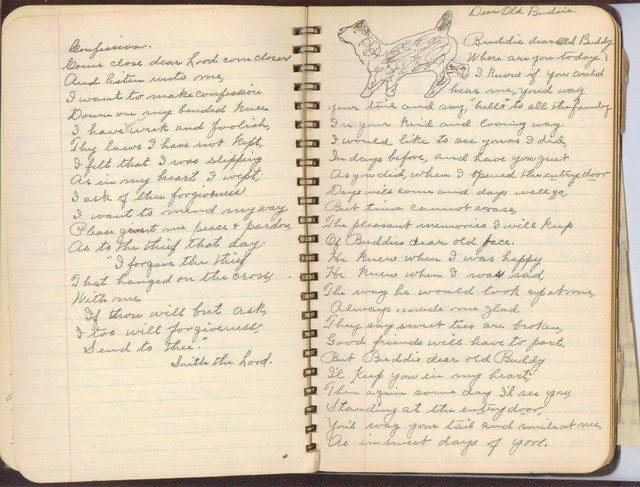 Confession.
Come close dear Lord come closer
And listen unto me,
I want to make confession
Down on my bended knee
I have weak and foolish,
Thy laws I have not kept,
I felt that I was slipping
As in my heart I wept,
I ask of thee forgiveness
I want to mend my way
Please grant me peace & pardon,
As to the thief that day.
"I forgave the thief
That hanged on the cross,
With me.
If thou will but ask,
I too will forgiveness,
Send to thee."
Saith the Lord.
Dear Old Buddie.
Buddie dear Old Buddy
Where are you to-day?
I know if you could
hear me, you'd wag
your tail and say, "hello" to all the family
In your kind and loving way.
I would like to see you as I did,
In days before, and have you greet
As you did, when I opened the entry door
Days will come and days will go,
But time cannot erase,
The pleasant memories I will keep
Of Buddies dear old face.
He knew when I was happy
He knew when I was sad
The way he would look up at me,
Always made me glad.
They say sweet ties are broken,
Good friends will have to part.
But Buddie dear old Buddy
I'll keep you in my heart,
Then again some day I'll see you,
Standing at the entry door,
You'll wag your tail and smile at me,
As in sweet days of yore.